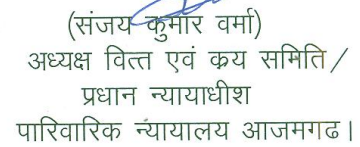 (संजय कुमार वर्मा)
अध्यक्ष वित्त एवं कय समिति/
प्रधान न्यायाधीश
पारिवारिक न्यायालय आजमगढ।